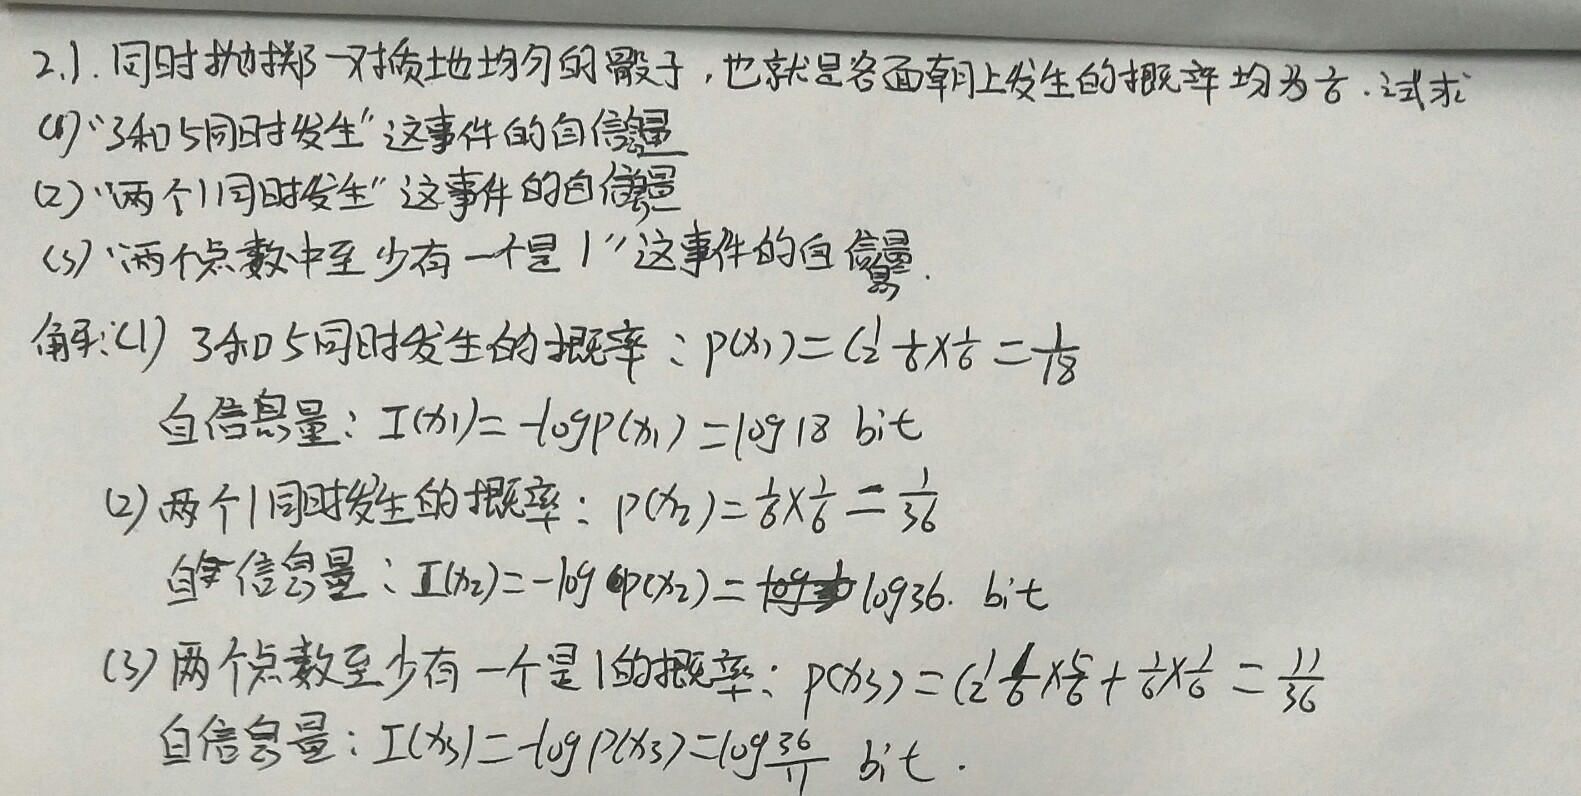 2.1. 同时抛掷一对质地均匀的骰子,也就是各面朝上发生的概率均为1/6.试求
(1)“3和5同时发生”这事件的自信息量
(2)“两个1同时发生”这事件的自信息量
(3)“两个点数中至少有一个是1”这事件的自信息量.
解:(1) 3和5同时发生的概率:p(x₁)=C₂¹ 1/6×1/6=1/18
自信息量:I(x₁)=-logp(x₁)=log18 bit
(2)两个1同时发生的概率:p(x₂)=1/6×1/6=1/36
自信息量:I(x₂)=-log p(x₂)=log36. bit
(3)两个点数至少有一个是1的概率:p(x₃)=C₂¹ 1/6×5/6+1/6×1/6=11/36
自信息量:I(x₃)=-logp(x₃)=log36/11 bit.